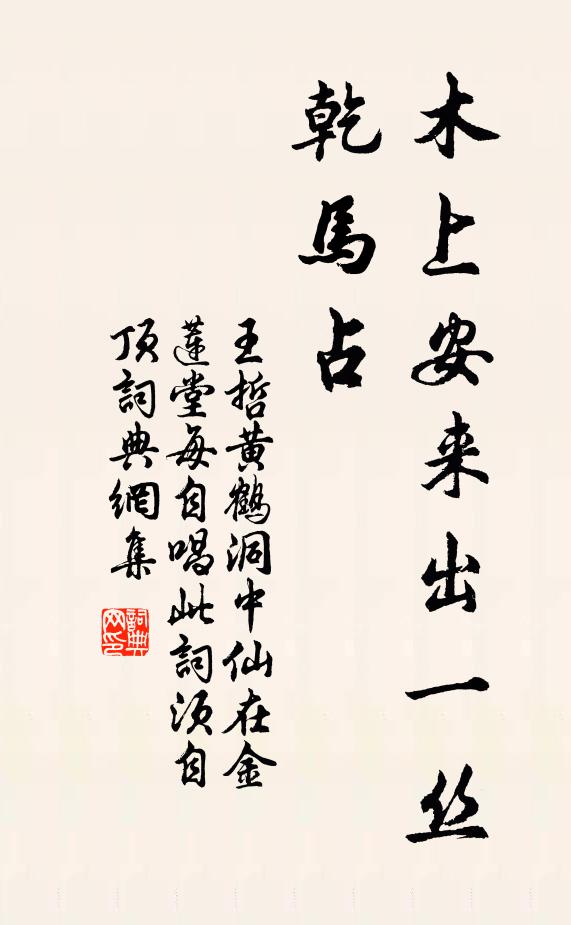 木上安来出一丝
乾馬占
王哲黄鶴洞中仙在金
蓮堂每自唱此詞須自
頂詞典網集
詞典网印